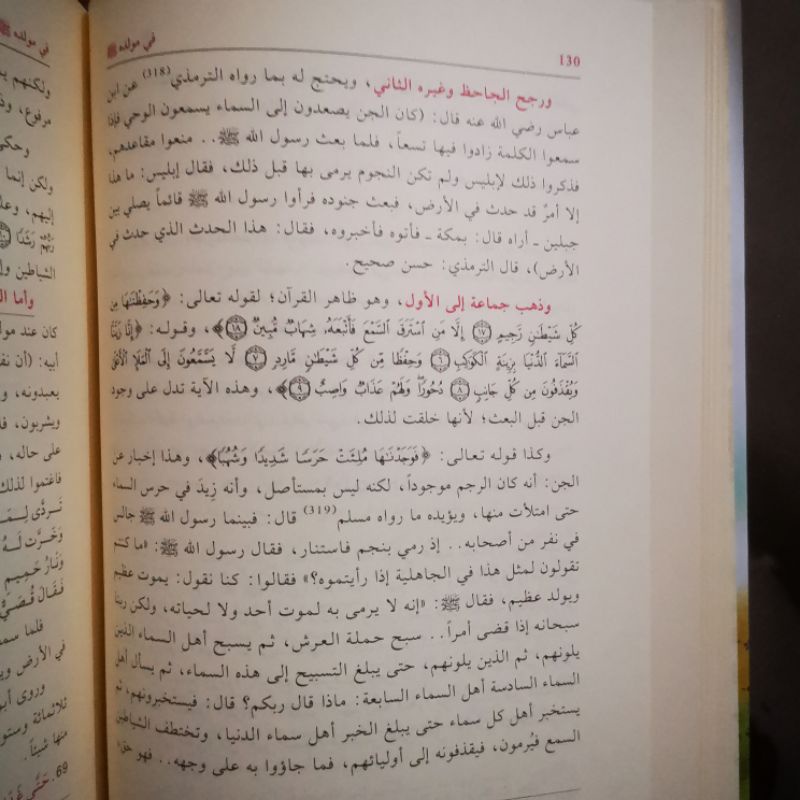 130
في مولده ﷺ
ورجح الجاحظ وغيره الثاني، ويحتج له بما رواه الترمذي(318) عن ابن
عباس رضي الله عنه قال: (كان الجن يصعدون إلى السماء يسمعون الوحي فإذا
سمعوا الكلمة زادوا فيها تسعاً، فلما بعث رسول الله ﷺ.. منعوا مقاعدهم،
فذكروا ذلك لإبليس ولم تكن النجوم يرمى بها قبل ذلك، فقال إبليس: ما هذا
إلا أمرٌ قد حدث في الأرض، فبعث جنوده فرأوا رسول الله ﷺ قائماً يصلي بين
جبلين ـ أراه قال: بمكة ـ فأتوه فأخبروه، فقال: هذا الحدث الذي حدث في
الأرض)، قال الترمذي: حسن صحيح.
وذهب جماعة إلى الأول، وهو ظاهر القرآن؛ لقوله تعالى: ﴿وَحَفِظْنَٰهَا مِن
كُلِّ شَيْطَٰنٍ رَّجِيمٍ ۝١٧ إِلَّا مَنِ ٱسْتَرَقَ ٱلسَّمْعَ فَأَتْبَعَهُۥ شِهَابٌ مُّبِينٌ ۝١٨﴾، وقوله: ﴿إِنَّا زَيَّنَّا
ٱلسَّمَآءَ ٱلدُّنْيَا بِزِينَةٍ ٱلْكَوَاكِبِ ۝٦ وَحِفْظًا مِّن كُلِّ شَيْطَٰنٍ مَّارِدٍ ۝٧ لَا يَسَّمَّعُونَ إِلَى ٱلْمَلَإِ ٱلْأَعْلَىٰ
وَيُقْذَفُونَ مِن كُلِّ جَانِبٍ ۝٨ دُحُورًا وَلَهُمْ عَذَابٌ وَاصِبٌ ۝٩﴾، وهذه الآية تدل على وجود
الجن قبل البعث؛ لأنها خلقت لذلك.
وكذا قوله تعالى: ﴿فَوَجَدْنَٰهَا مُلِئَتْ حَرَسًا شَدِيدًا وَشُهُبًا﴾، وهذا إخبار عن
الجن: أنه كان الرجم موجوداً، لكنه ليس بمستأصل، وأنه زِيدَ في حرس السماء
حتى امتلأت منها، ويؤيده ما رواه مسلم(319) قال: فبينما رسول الله ﷺ جالس
في نفر من أصحابه.. إذ رمي بنجم فاستنار، فقال رسول الله ﷺ: «ما كنتم
تقولون لمثل هذا في الجاهلية إذا رأيتموه؟» فقالوا: كنا نقول: يموت عظيم
ويولد عظيم، فقال ﷺ: «إنه لا يرمى به لموت أحد ولا لحياته، ولكن ربنا
سبحانه إذا قضى أمراً.. سبح حملة العرش، ثم يسبح أهل السماء الذين
يلونهم، ثم الذين يلونهم، حتى يبلغ التسبيح إلى هذه السماء، ثم يسأل أهل
السماء السادسة أهل السماء السابعة: ماذا قال ربكم؟ قال: فيستخبرونهم، ثم
يستخبر أهل كل سماء حتى يبلغ الخبر أهل سماء الدنيا، وتختطف الشياطين
السمع فيُرمون، فيقذفونه إلى أوليائهم، فما جاؤوا به على وجهه.. فهو حق،
في مولده ﷺ
ولكنهم
مرفوع،
ولكن إنما
إليهم،
رَشَدًا
الشياطين
وأما
كان عند
أبيه: (أن
يعبدونه،
ويشربون،
على حاله،
فاغتموا لذلك
تَرَدَّى
وَخَرَّتْ لَهُ
وَنَارُ
فَقَالَ
فلما
في الأرض
وروى
ثلاثمائة
منها شيئاً.
69